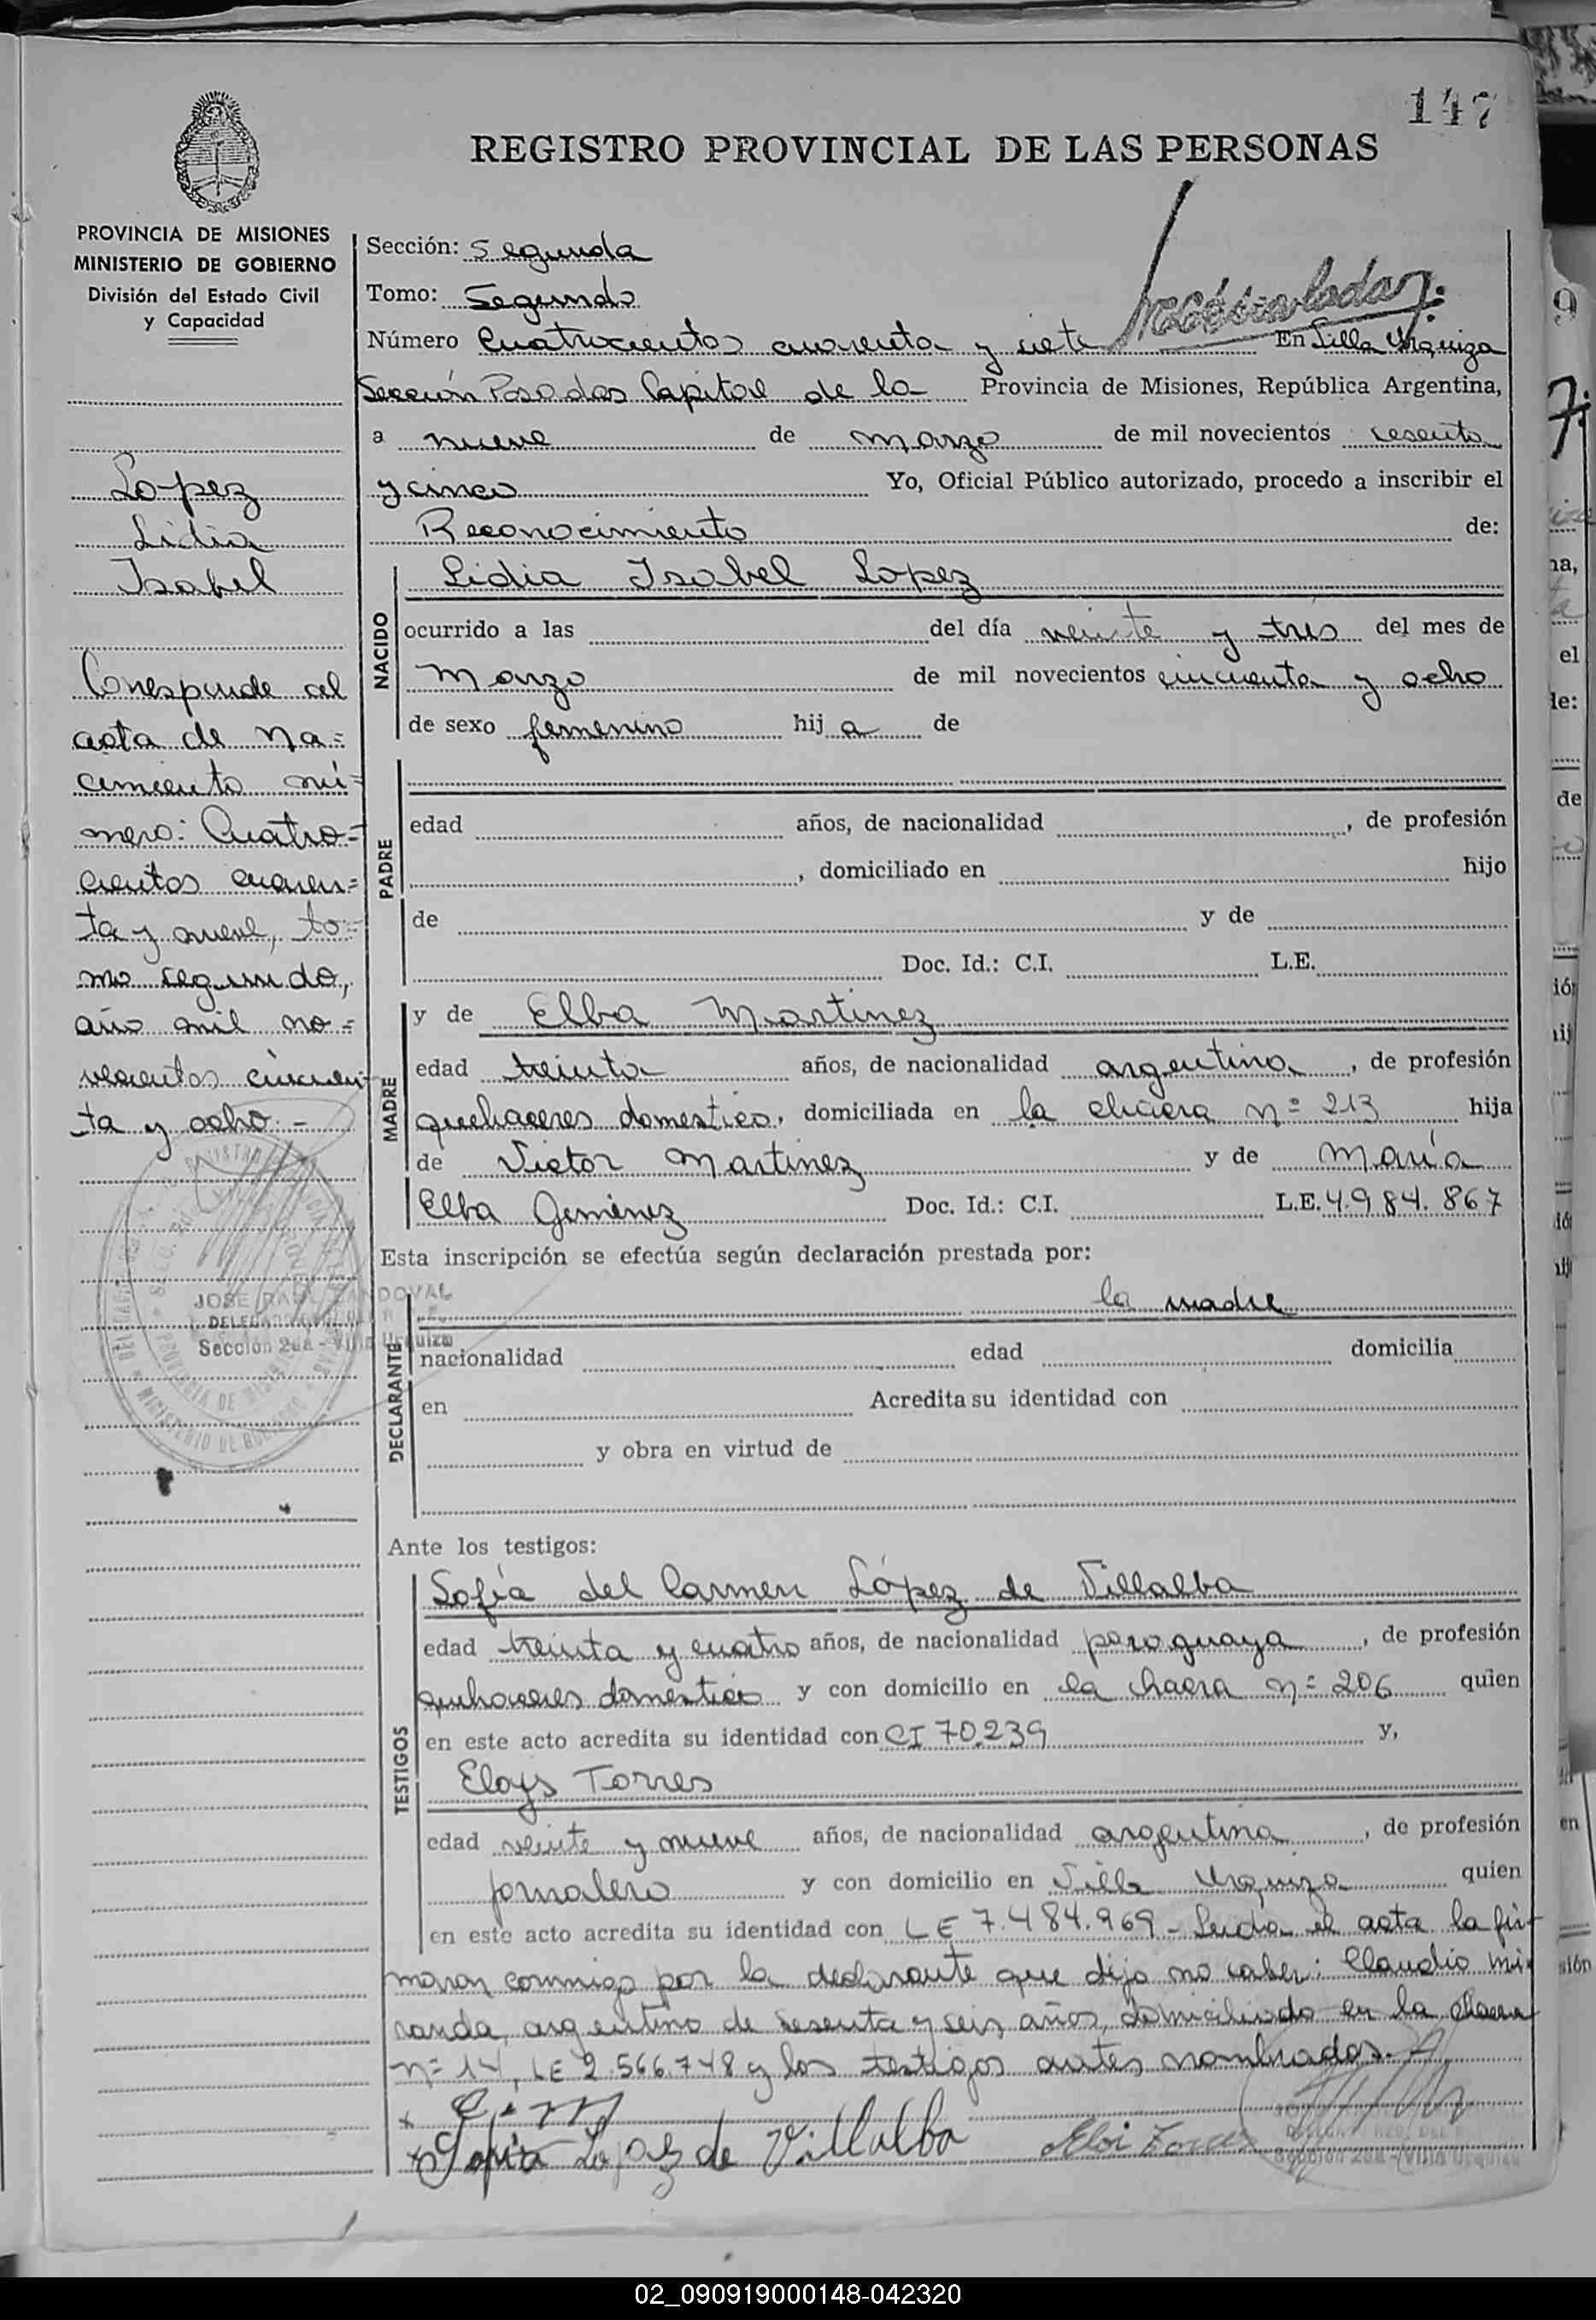 147
REGISTRO PROVINCIAL DE LAS PERSONAS
PROVINCIA DE MISIONES
MINISTERIO DE GOBIERNO
División del Estado Civil
y Capacidad
Lopez
Lidia
Isabel
Corresponde al
acta de Na=
cimiento nú=
mero: Cuatro=
cientos cuaren=
ta y nueve, to=
mo segundo,
año mil no=
vecientos cincuen
ta y ocho.-
JOSE RAUL SANDOVAL
Sección 2da - Villa Urquiza
Sección: Segunda
Tomo: Segundo
Número Cuatrocientos cuarenta y siete En Villa Urquiza
Sección Posadas Capital de la Provincia de Misiones, República Argentina,
a nueve de marzo de mil novecientos sesenta
y cinco Yo, Oficial Público autorizado, procedo a inscribir el
Reconocimiento de:
NACIDO
Lidia Isabel Lopez
ocurrido a las del día veinte y tres del mes de
Marzo de mil novecientos cincuenta y ocho
de sexo femenino hij a de
PADRE
edad años, de nacionalidad , de profesión
, domiciliado en hijo
de y de
Doc. Id.: C.I. L.E.
MADRE
y de Elba Martinez
edad treinta años, de nacionalidad argentina , de profesión
quehaceres domestico, domiciliada en la chacra nº 213 hija
de Victor Martinez y de María
Elba Gimenez Doc. Id.: C.I. L.E. 4.984.867
Esta inscripción se efectúa según declaración prestada por:
DECLARANTE
la madre
nacionalidad edad domicilia
en Acredita su identidad con
y obra en virtud de
Ante los testigos:
TESTIGOS
Sofía del Carmen López de Villalba
edad treinta y cuatro años, de nacionalidad paraguaya , de profesión
quehaceres domestico y con domicilio en la chacra nº 206 quien
en este acto acredita su identidad con CI 70.239 y,
Eloys Torres
edad veinte y nueve años, de nacionalidad argentina , de profesión
jornalero y con domicilio en Villa Urquiza quien
en este acto acredita su identidad con LE 7.484.969 - Leida el acta la fir
maron conmigo por la declarante que dijo no saber: Claudio Mi
randa, argentino de sesenta y seis años, domiciliado en la chacra
nº 14, LE 2.566.748 y los testigos antes nombrados.-
Sofia Lopez de Villalba
Eloi Torres
Sección 2da - Villa Urquiza
02_090919000148-042320